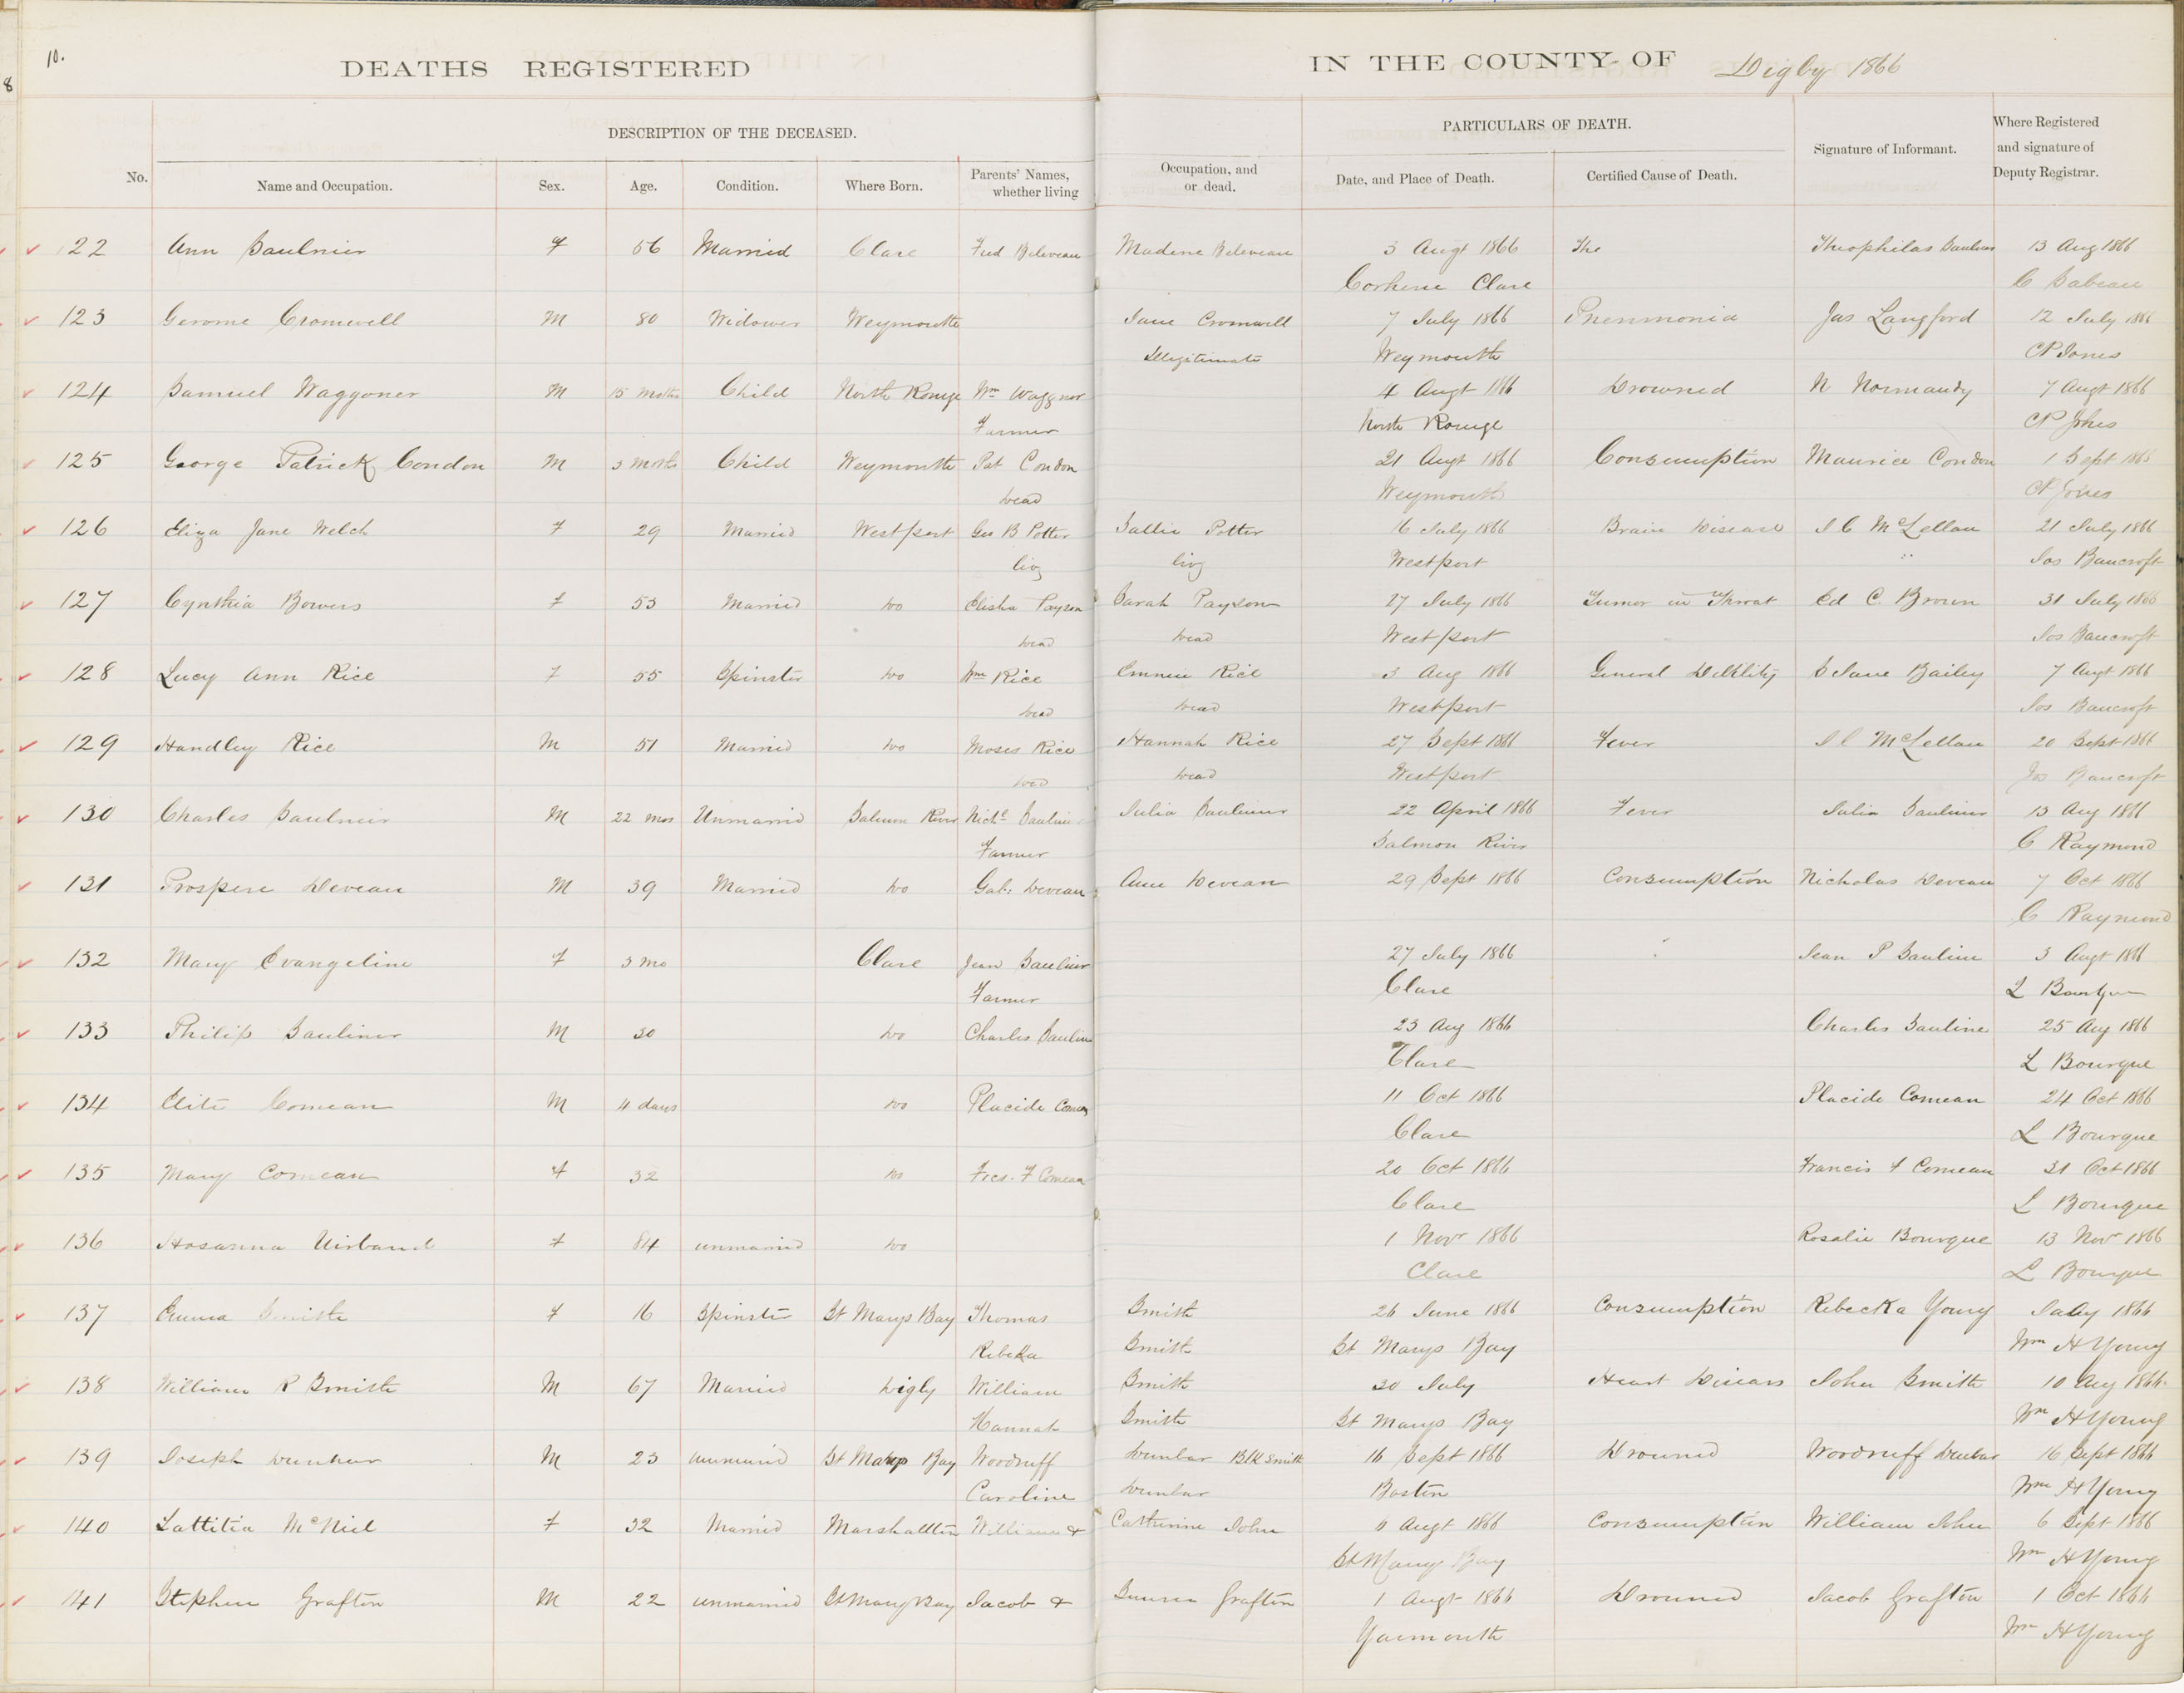 10.
8
DEATHS REGISTERED IN THE COUNTY OF Digby 1866
DESCRIPTION OF THE DECEASED. PARTICULARS OF DEATH. Signature of Informant. Where Registered and signature of Deputy Registrar.
No. Name and Occupation. Sex. Age. Condition. Where Born. Parents' Names, whether living Occupation, and or dead. Date, and Place of Death. Certified Cause of Death.
122 Ann Saulnier F 56 Married Clare Fred Beleveau Madene Beleveau 3 Augt 1866 The Theophilas Saulnier 13 Aug 1866
Clare C Sabeau
123 Gerome Cromwell M 80 Widower Weymouth Jane Cromwell 7 July 1866 Pnenmonia Jas Langford 12 July 1866
Illegitimate Weymouth CP Jones
124 Samuel Waggoner M 15 moths Child North Rouge Wm Waggnor 4 Augt 1866 Drowned N Normandy 7 Augt 1866
Farmer North Rouge CP Jones
125 George Patrick Condon M 3 moths Child Weymouth Pat Condon 21 Augt 1866 Consumption Maurice Condon 1 Sept 1866
Dead Weymouth CP Jones
126 Eliza Jane Welch F 29 Married Westport Geo B Potter Sallie Potter 16 July 1866 Brain Disease J C McLellan 21 July 1866
livg livg Westport " Jos Bancroft
127 Cynthia Bowers F 53 Married Do Elisha Payson Sarah Payson 27 July 1866 Tumor in Throat Ed C. Brown 31 July 1866
Dead Dead Westport Jos Bancroft
128 Lucy Ann Rice F 55 Spinster Do Wm Rice Emnie Rice 3 Aug 1866 General Debility E Jane Bailey 7 Augt 1866
Dead Dead Westport Jos Bancroft
129 Handley Rice M 51 Married Do Moses Rice Hannah Rice 27 Sept 1866 Fever J C McLellan 20 Sept 1866
Ded Dead Westport Jos Bancroft
130 Charles Saulnier M 22 mos Unmarried Salmon River Nichs Saulnier Julia Sauliner 22 April 1866 Fever Julia Sauliner 13 Aug 1866
Farmer Salmon River C Raymond
131 Prospere Deveau M 39 Married Do Gab: Deveau Ann Deveau 29 Sept 1866 Consumption Nicholas Deveau 7 Oct 1866
C Raymond
132 Mary Evangeline F 3 mo Clare Jean Saulinier 27 July 1866 " Jean P Saulin 3 Augt 1866
Farmer Clare L Bourque
133 Philip Sauliner M 30 Do Charles Saulin 23 Aug 1866 Charles Sauline 25 Aug 1866
Clare L Bourque
134 Elite Comeau M 4 days Do Placide Comeau 11 Oct 1866 Placide Comeau 24 Oct 1866
Clare L Bourque
135 Mary Comeau F 32 Do Frcs. F Comeau 20 Oct 1866 Francis F Comeau 31 Oct 1866
Clare L Bourque
136 Hosanna F 84 unmarried Do 1 Novr 1866 Rosalie Bourque 13 Nov 1866
Clare L Bourque
137 Emma Smith F 16 Spinster St Marys Bay Thomas Smith 26 June 1866 Consumption Rebecka Young 1866
Rebeka Smith St Marys Bay Wm H Young
138 William R Smith M 67 Married Digby William Smith 30 July Heart Diseas John Smith 10 Aug 1866
Hannah Smith St Marys Bay Wm H Young
139 Joseph Dunbar M 23 unmarried St Marys Bay Woodruff Dunbar Blk Smith 16 Sept 1866 Drouned Woodruff Dunbar 16 Sept 1866
Caroline Dunbar Boston Wm H Young
140 Lattitia McNiel F 32 Married Marshalltin William & Catherine John 6 Augt 1866 Consumption William John 6 Sept 1866
St Marys Bay Wm H Young
141 Stephen Grafton M 22 unmarried St Marys Bay Jacob & Grafton 1 Augt 1866 Drouned Jacob Grafton 1 Oct 1866
Yarmouth Wm H Young